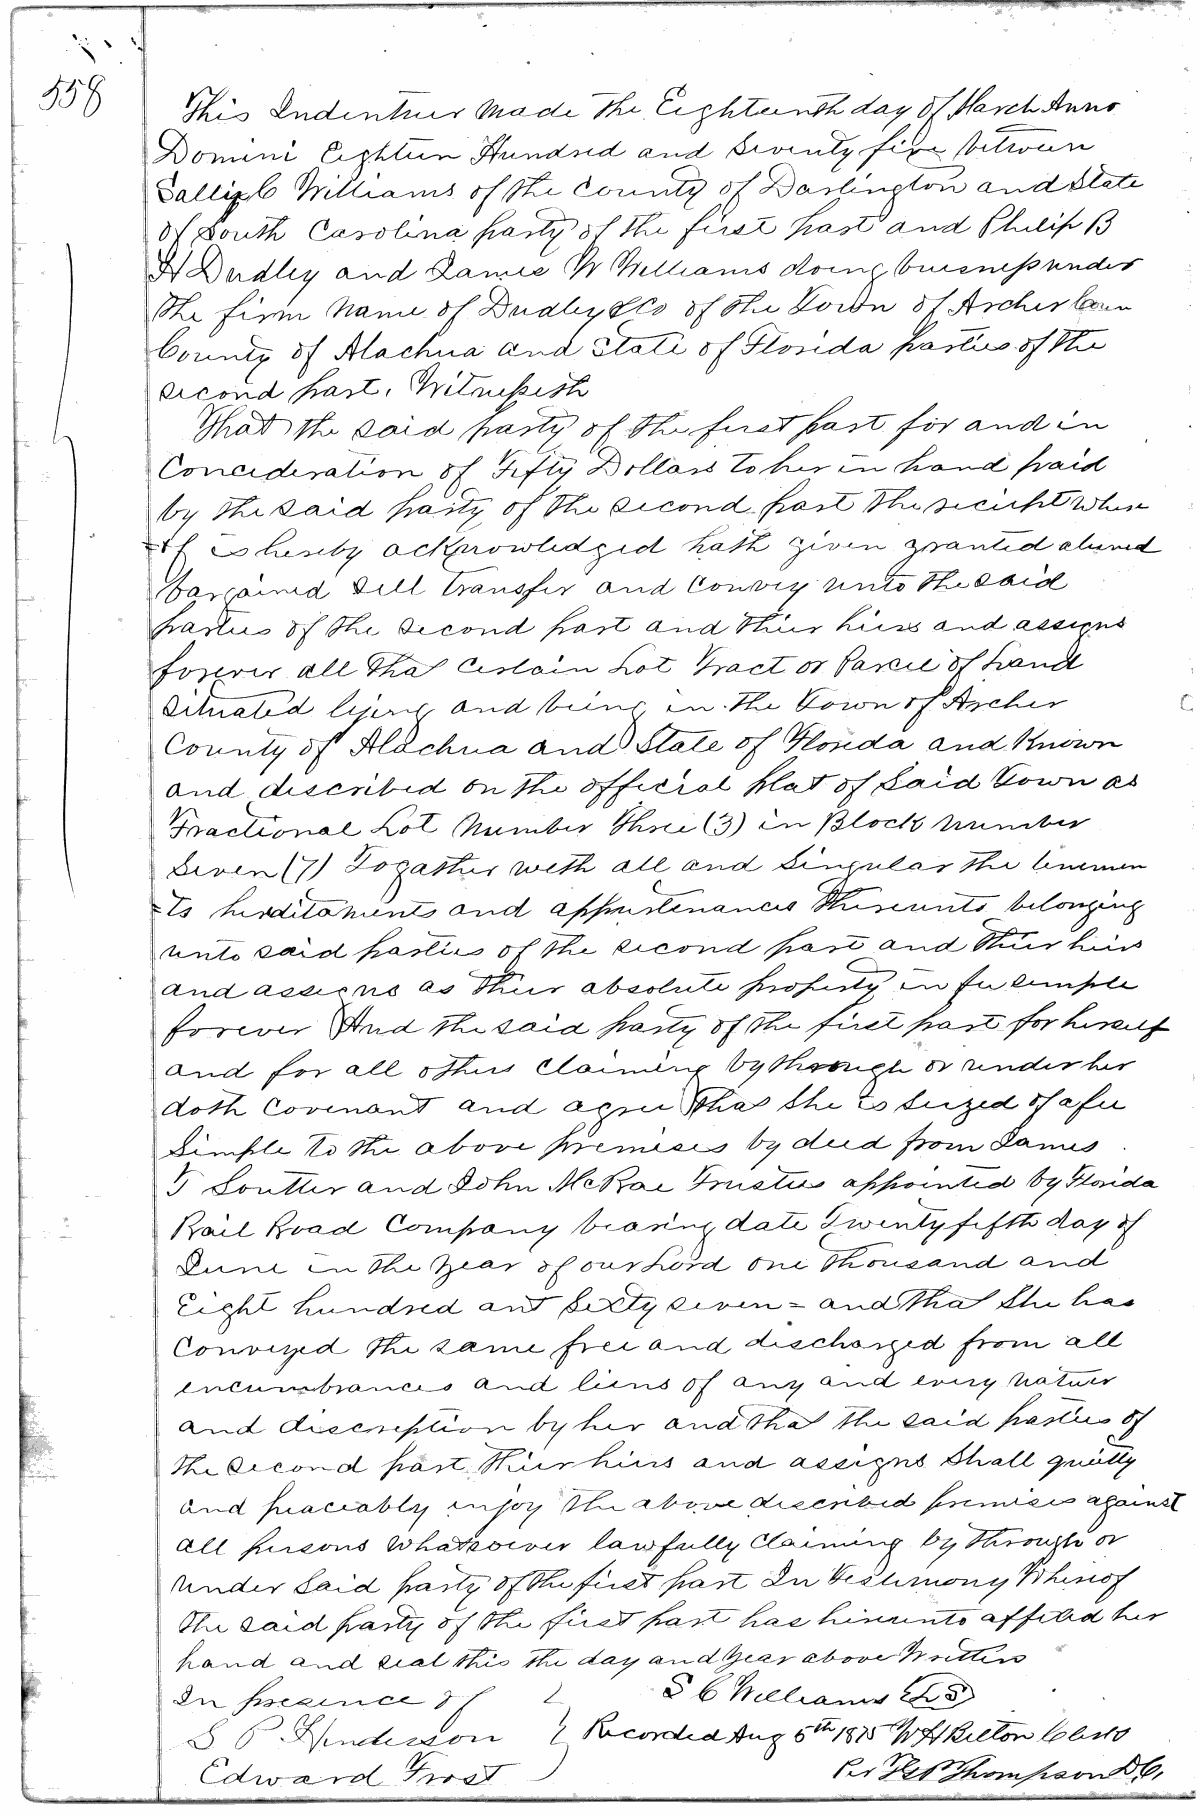 558
This Indenture Made the Eighteenth day of March Anno
Domini Eighteen Hundred and Seventy five between
Sallie C Williams of the County of Darlington and State
of South Carolina party of the first part and Philip B
H Dudley and James W Williams doing buesness under
the firm Name of Dudley & Co of the Town of Archer Coun
County of Alachua and State of Florida parties of the
second part. Witnesseth
That the said party of the first part for and in
Concideration of Fifty Dollars to her in hand paid
by the said party of the second part the reciept where
=of is hereby acknowledged hath given granted aliened
bargained sell transfer and convey unto the said
parties of the second part and thier hiers and assigns
forever all that certain Lot Tract or Parcel of Land
situated lying and being in the Town of Archer
County of Alachua and State of Florida and Known
and described on the official plat of Said Town as
Fractional Lot Number Three (3) in Block Number
Seven (7) Togather with all and Singular the tenemen
=ts herditaments and appurtenances thereunto belonging
unto said parties of the second part and thier hiers
and assigns as thier absolute property in fee simple
forever And the said party of the first part for herself
and for all others claiming by through or under her
doth covenant and agree that She is Siezed of a fee
Simple to the above premises by deed from James
T Soutter and John McRae Trustees appointed by Florida
Rail Road Company bearing date Twenty fifth day of
June in the Year of our Lord one thousand and
Eight hundred ant Sixty seven = and that She has
Conveyed the same free and discharged from all
encumbrances and liens of any and every nature
and discription by her and that the said parties of
the second part thier hiers and assigns Shall quietly
and peaceably enjoy the above described premises against
all persons whatsoever lawfully claiming by through or
under Said party of the first part In Testimony Whereof
the said party of the first part has hereunto affixed her
hand and seal this the day and Year above Written
In presence of S C Williams LS
S P Henderson Recorded Aug 5th 1875 W H Belton Clerk
Edward Frost Per Thompson D.C.